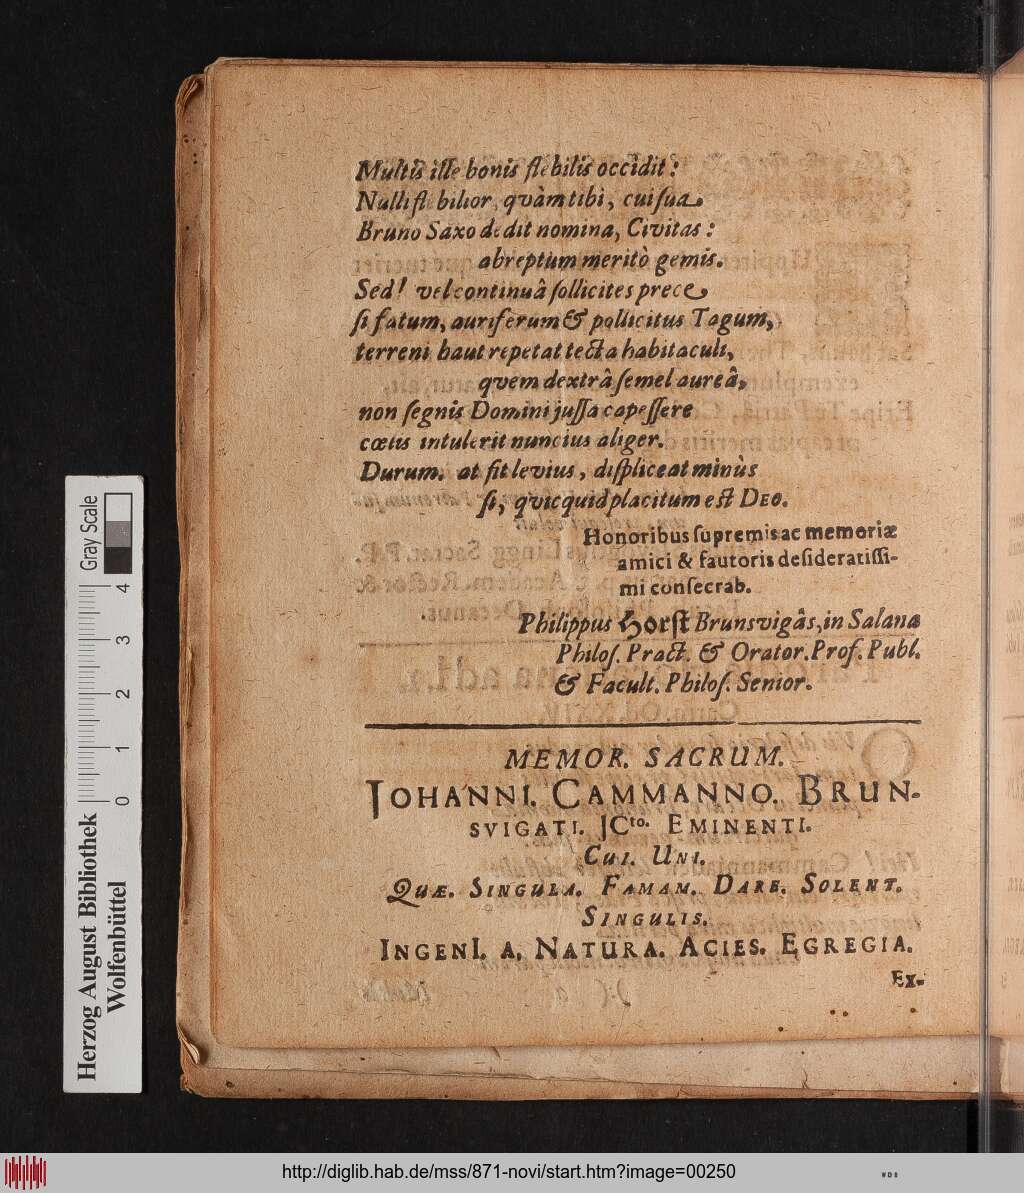 Multis ille bonis flebilis occidit:
Nulli flebilior, quàm tibi, cui sua
Bruno Saxo dedit nomina, Civitas:
abreptum meritò gemis.
Sed! vel continuâ sollicites prece
si fatum, auriferum & pollicitus Tagum,
terreni haut repetat tecta habitaculi,
qvem dextrâ semel aureâ,
non segnis Domini jussa capessere
cœtis intulerit nuncius aliger.
Durum. at fit levius, displiceat minùs
si, qvicquid placitum est DEO.
Honoribus supremis ac memoriæ
amici & fautoris desideratissi-
mi consecrab.
Philippus Horst Brunsvigâs, in Salana
Philos. Pract. & Orator. Prof. Publ.
& Facult. Philos. Senior.
MEMOR. SACRUM.
JOHANNI. CAMMANNO. BRUN-
SVIGATI. JCto. EMINENTI.
CUI. UNI.
QUÆ. SINGULA. FAMAM. DARE. SOLENT.
SINGULIS.
INGENI. A. NATURA. ACIES. EGREGIA.
Ex-
Gray Scale
4
3
2
1
0
Herzog August Bibliothek
Wolfenbüttel
http://diglib.hab.de/mss/871-novi/start.htm?image=00250